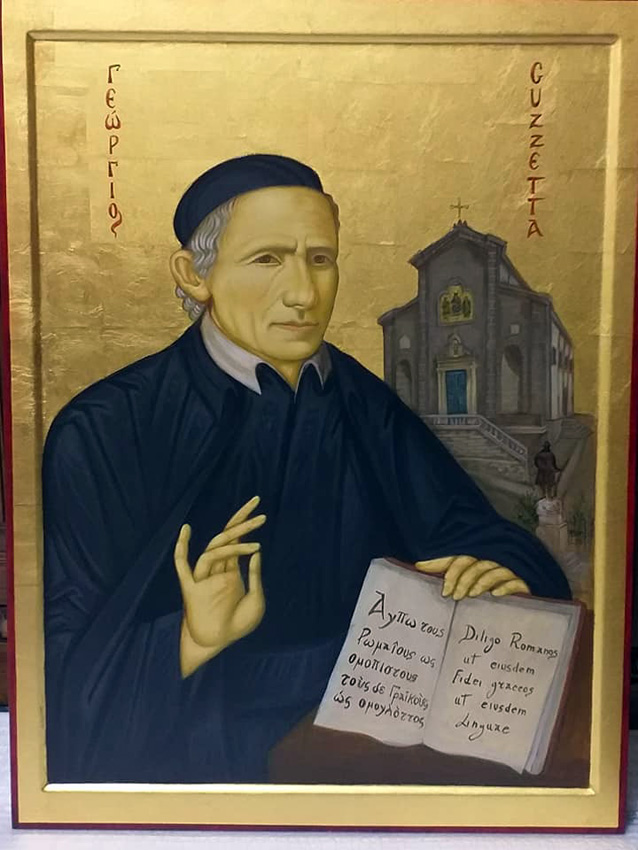 Γεώργιος
GUZZETTA
Ἀγπω τους
Ρωμαίους ως
ομοπιστους
τοὺς δε Γραίκοὶς
ὡς ομογλόττος
Diligo Romanos
ut eiusdem
Fidei graecos
ut eiusdem
Linguae